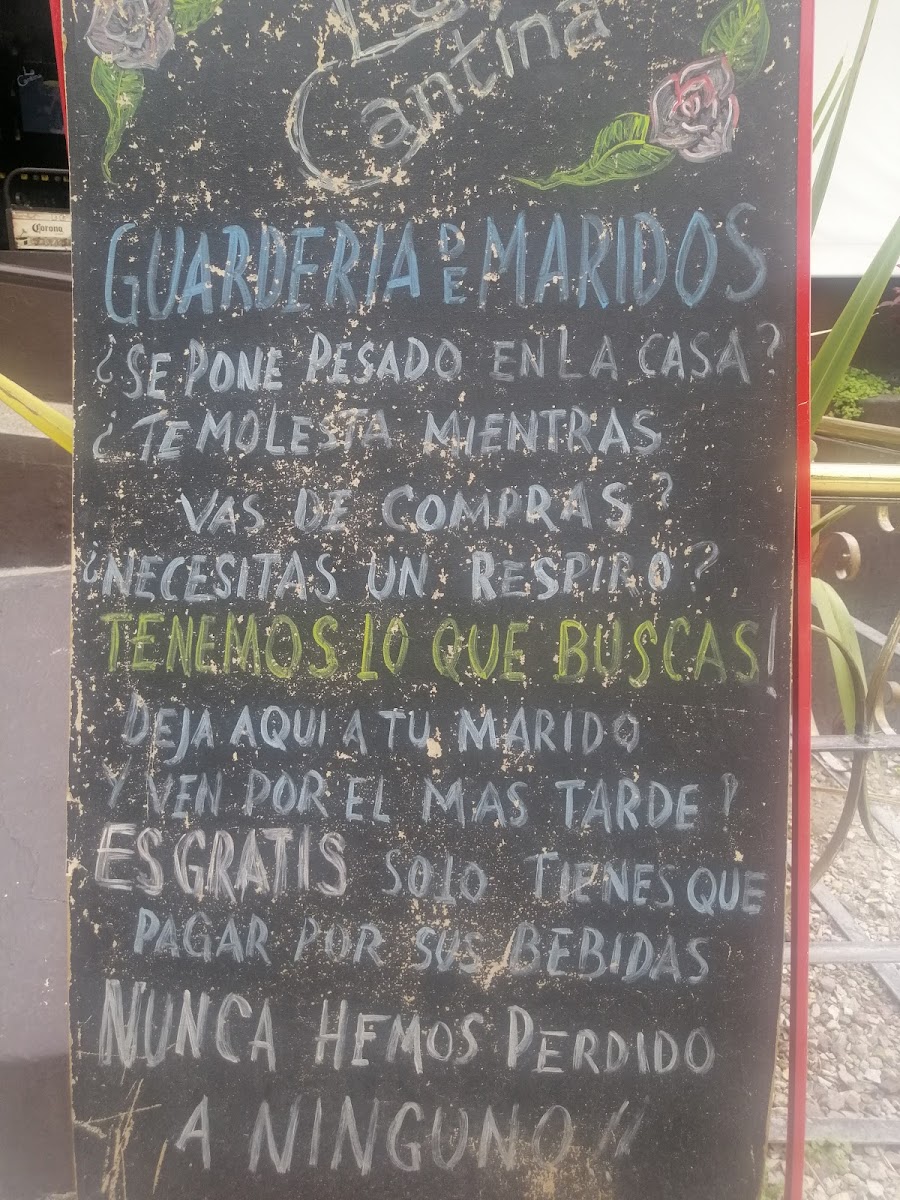 La
Cantina
Corona
GUARDERIA DE MARIDOS
¿SE PONE PESADO EN LA CASA?
¿TE MOLESTA MIENTRAS
VAS DE COMPRAS?
¿NECESITAS UN RESPIRO?
TENEMOS LO QUE BUSCAS!
DEJA AQUI A TU MARIDO
Y VEN POR EL MAS TARDE!
ES GRATIS SOLO TIENES QUE
PAGAR POR SUS BEBIDAS
NUNCA HEMOS PERDIDO
A NINGUNO!!